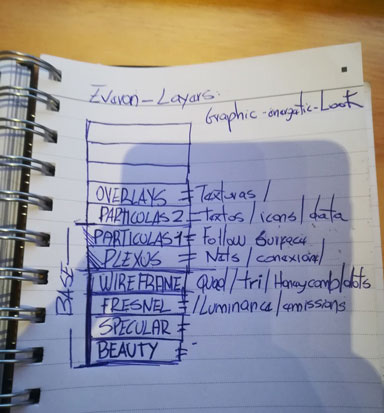 Evaron-Layers.
Graphic-energetic-Look
OVERLAYS = Texturas /
PARTICOLAS 2 = textos / icons / data
PARTICOLAS 1 = Follow Surface
PLEXUS = Nets / conexion /
WIREFRAME Quad / tri / Honeycomb / dots
FRESNEL = / Luminance / emissions
SPECULAR =
BEAUTY =
BASE